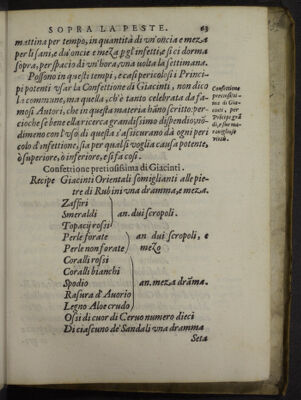 SOPRA LA PESTE. 63
mattina per tempo, in quantità di vn'oncia e meza
per li sani, e du'oncie e meza pgl'infetti, e si ci dorma
sopra, per spacio di vn'hora, vna uolta la settimana.
Possono in questi tempi, e casi pericolosi i Princi-
pi potenti vsar la Confettione di Giacinti, non dico
la commune, ma quella, ch'è tanto celebrata da fa-
mosi Autori, che in questa materia hāno scritto: per-
cioche se bene ella ricerca grandissimo dispendio, nō-
dimeno con l'vso di questa s'assicurano dà ogni peri
colo d'infettione, sia per qual si voglia causa potente,
ò superiore, ò inferiore, e si fa cosi.
Confettione
preciosissi-
ma di Gia-
cinti, per
Prīcipi grā
di, e sue ma-
rauigliose
virtù.
Confettione pretiosissima di Giacinti.
Recipe Giacinti Orientali somiglianti alle pie-
tre di Rubini vna dramma, e meza.
Zaffiri
Smeraldi an. dui scropoli.
Topacij rossi
Perle forate an dui scropoli, e
Perle non forate mezo
Coralli rossi
Coralli bianchi
Spodio an. meza drāma.
Rasura d'Auorio
Legno Aloe crudo
Ossi di cuor di Ceruo numero dieci
Di ciascuno de' Sandali vna dramma
Seta